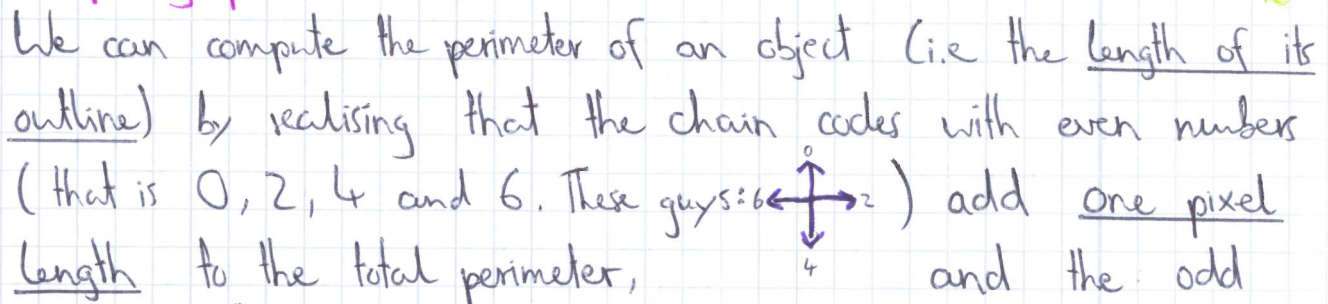 We can compute the perimeter of an object (i.e the length of its
outline) by realising that the chain codes with even numbers
(that is 0, 2, 4 and 6. These guys: 6 0 2 4) add one pixel
length to the total perimeter, and the odd